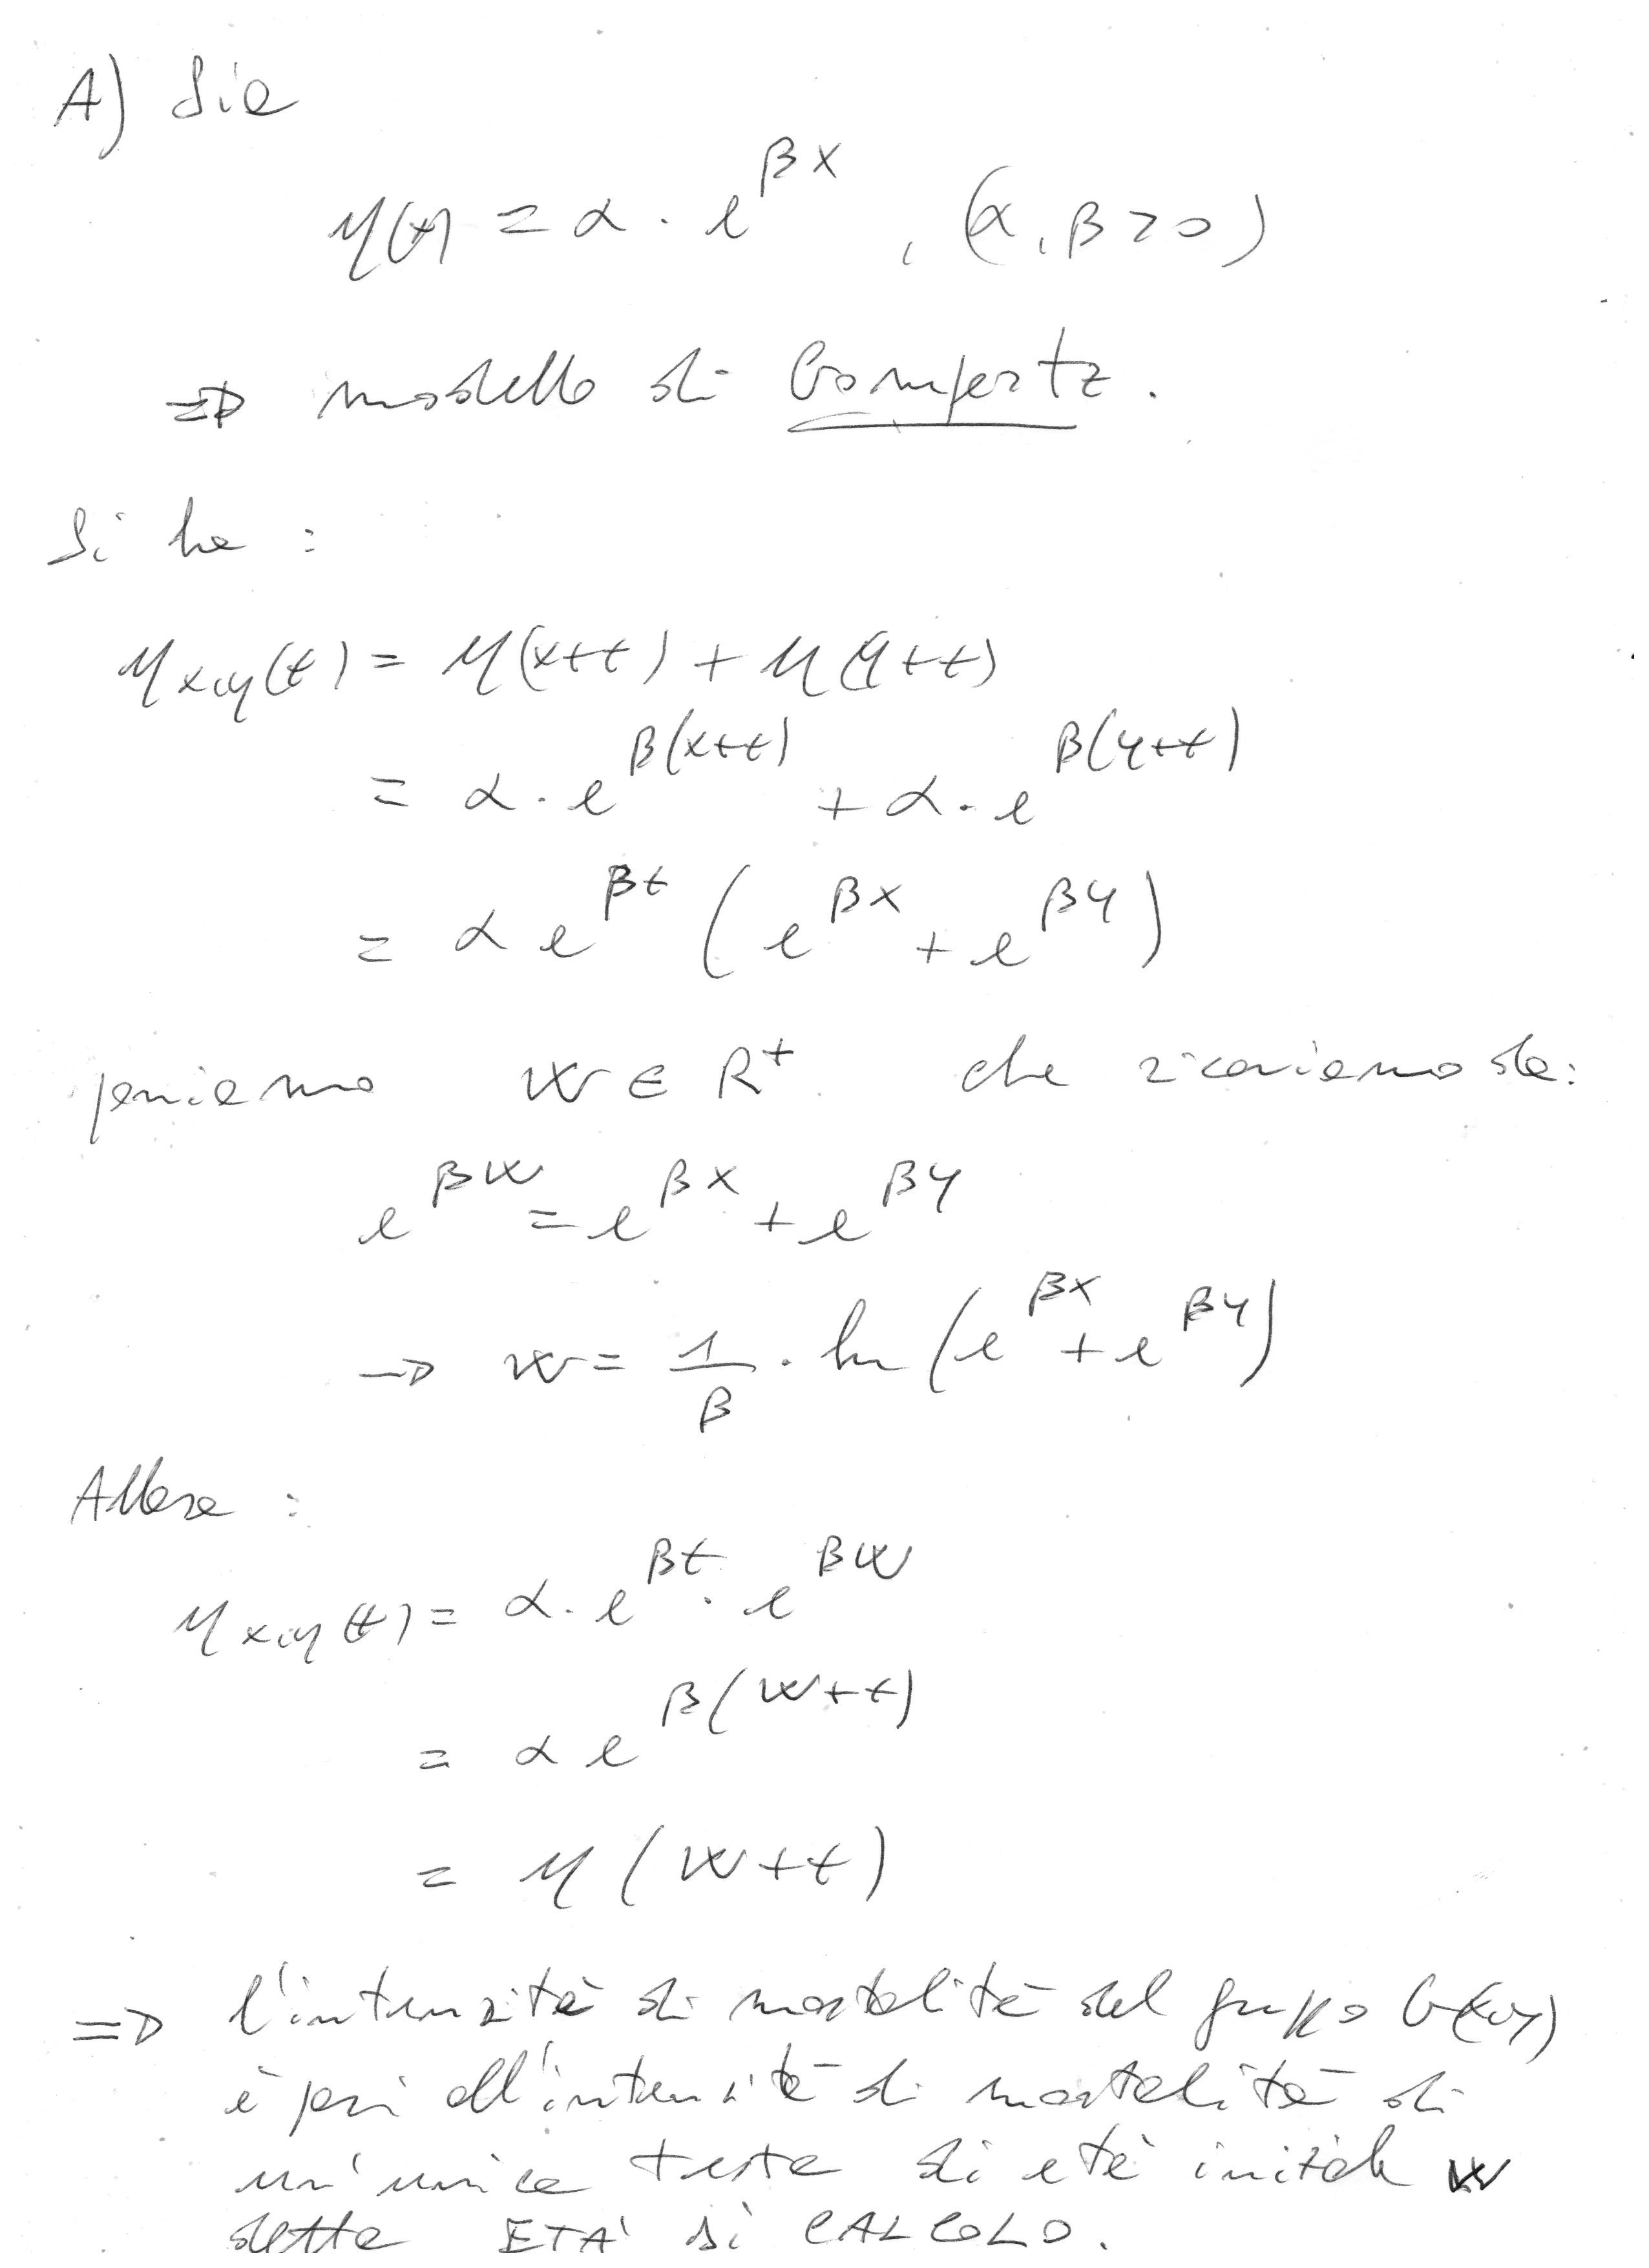 A) Sia
μ(x) = α · e^{βx} , (α, β > 0)
⇒ modello di Gompertz.
Si ha :
μ_{x,y}(t) = μ(x+t) + μ(y+t)
= α · e^{β(x+t)} + α · e^{β(y+t)}
= α e^{βt} (e^{βx} + e^{βy})
poniamo W ∈ R⁺ che ricaviamo da:
e^{βW} = e^{βx} + e^{βy}
→ W = 1/β · ln (e^{βx} + e^{βy})
Allora :
μ_{x,y}(t) = α · e^{βt} · e^{βW}
= α e^{β(W+t)}
= μ (W+t)
⇒ l'intensità di mortalità del gruppo G(x,y)
è pari all'intensità di mortalità di
un'unica testa di età iniziale W
detta ETÀ DI CALCOLO.